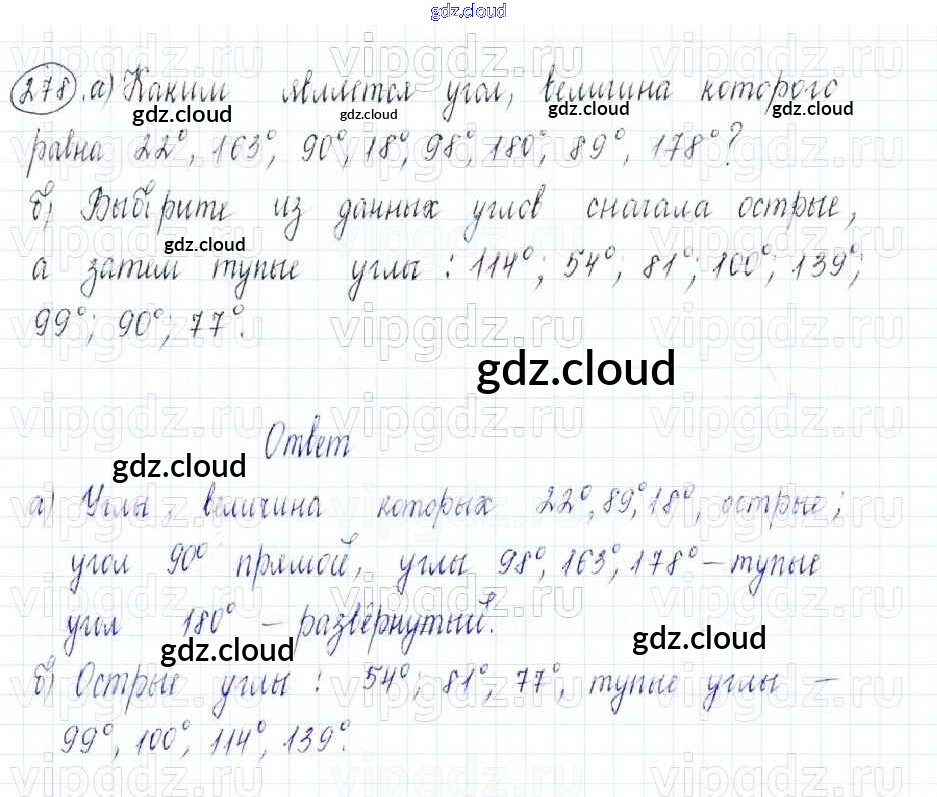 gdz.cloud
278. а) Каким является угол, величина которого
равна 22°, 163°, 90°, 18°, 98°, 180°, 89°, 178°?
б) Выберите из данных углов сначала острые,
а затем тупые углы : 114°; 54°; 81°; 100°; 139°;
99°; 90°; 77°.
gdz.cloud
Ответ
gdz.cloud
а) Углы, величина которых 22°, 89°, 18°, острые;
угол 90° прямой, углы 98°, 163°, 178° – тупые
угол 180° – развёрнутый.
gdz.cloud gdz.cloud
б) Острые углы : 54°, 81°, 77°, тупые углы –
99°, 100°, 114°, 139°.